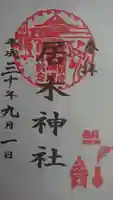 奉拝
居木神社
平成三十年九月一日